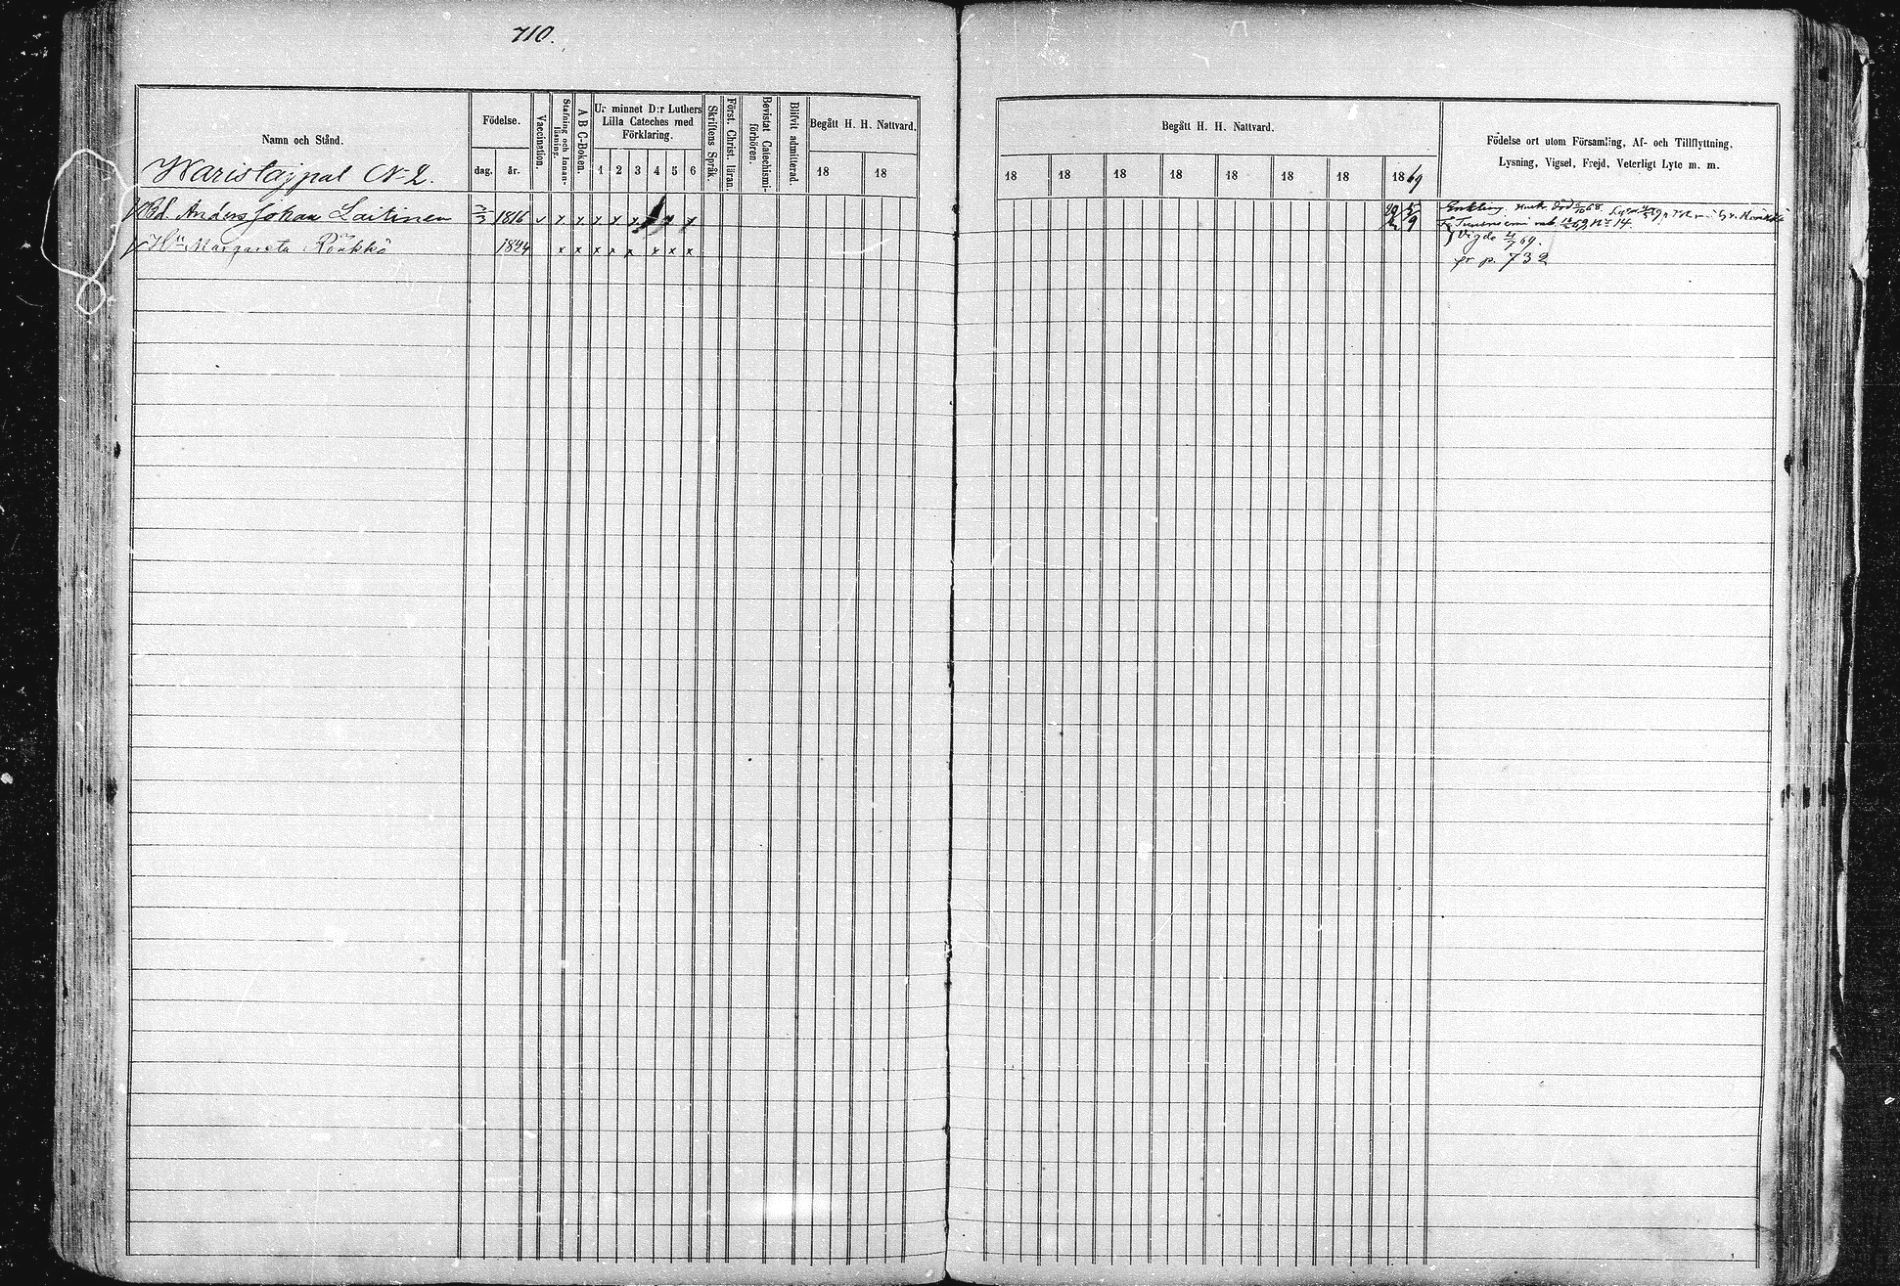 710.
Namn och Stånd.
Födelse.
dag.
år.
Vaccination.
Stafning och Innan-
läsning.
A B C-Boken.
Ur minnet D:r Luthers
Lilla Cateches med
Förklaring.
1 2 3 4 5 6
Skriftens Språk.
Först. Christ. läran.
Bevistat Catechismi-
förhören.
Blifvit admitterad.
Begått H. H. Nattvard.
18 18
Waristaipal N 2.
Bd. Anders Johan Laitinen 1816
Hu Margareta Rönkkö 1824
Begått H. H. Nattvard.
18 18 18 18 18 18 18 1869
Födelse ort utom Församling, Af- och Tillflyttning,
Lysning, Vigsel, Frejd, Veterligt Lyte m. m.
Enkling. död 68.
N:o 14.
Vigde 69.
fr p. 732